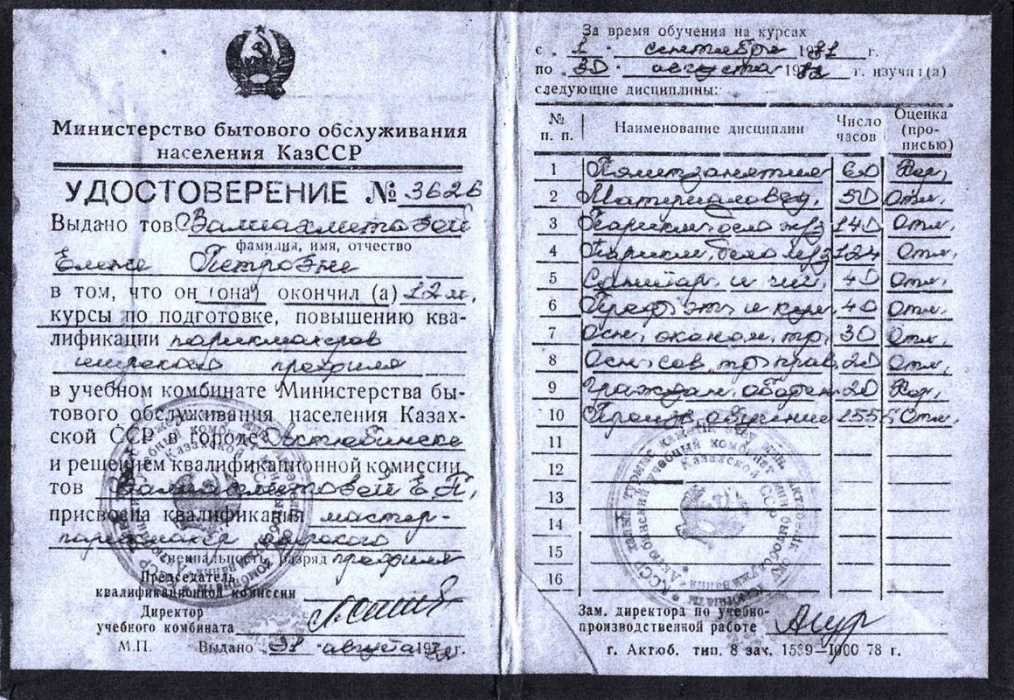 Министерство бытового обслуживания
населения КазССР
УДОСТОВЕРЕНИЕ № 3626
Выдано тов. Валиахметовой
фамилия, имя, отчество
Елене Петровне
в том, что он (она) окончил (а) 12 м.
курсы по подготовке, повышению ква-
лификации парикмахеров
широкого профиля
в учебном комбинате Министерства бы-
тового обслуживания населения Казах-
ской ССР в городе Актюбинске
и решением квалификационной комиссии
тов Валиахметовой Е.П.
присвоена квалификация мастер-
парикмахер широкого
специальность, разряд профиля
Председатель
квалификационной комиссии
Директор
учебного комбината
М.П. Выдано августа 197 г.
За время обучения на курсах
с 1 сентября 1981 г.
по 30 августа 1982 г. изучил(а)
следующие дисциплины:
№ п. п. Наименование дисциплин Число часов Оценка (про-писью)
1 Политзанятия 60 Хор.
2 Материаловед. 50 Отл.
3 Парикм. дело 140 Отл.
4 Парикм. дело 124 Отл.
5 Санитар. и гиг. 40 Отл.
6 Проф. эт. и 40 Отл.
7 Осн. эконом. 30 Отл.
8 Осн. сов. прав 20 Отл.
9 Граждан. оборон 20 Хор.
10 Произв. обучение 1555 Отл.
11
12
13
14
15
16
Зам. директора по учебно-
производственной работе
г. Актюб. тип. 8 зак. 1539—1000 78 г.